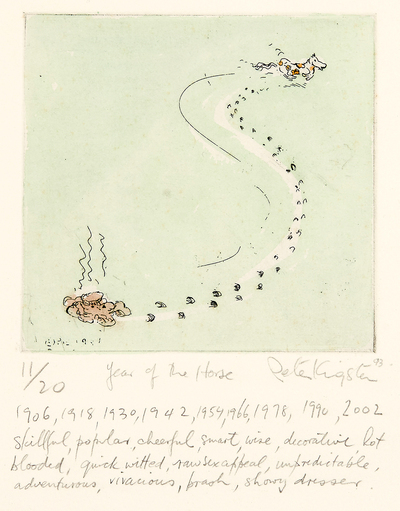 11/20 Year of the Horse Peter Kingston 93
1906, 1918, 1930, 1942, 1954, 1966, 1978, 1990, 2002
Skillful, popular, cheerful, smart, wise, decorative hot
blooded, quick witted, raw sex appeal, unpredictable,
adventurous, vivacious, brash, showy dresser.